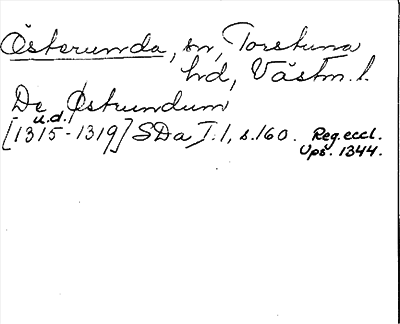 Österunda, sn, Torstuna
hd, Västm. l.
De Østrundum
u.d.
[1315-1319] SDa I:1, s.160. Reg. eccl.
Ups. 1344.